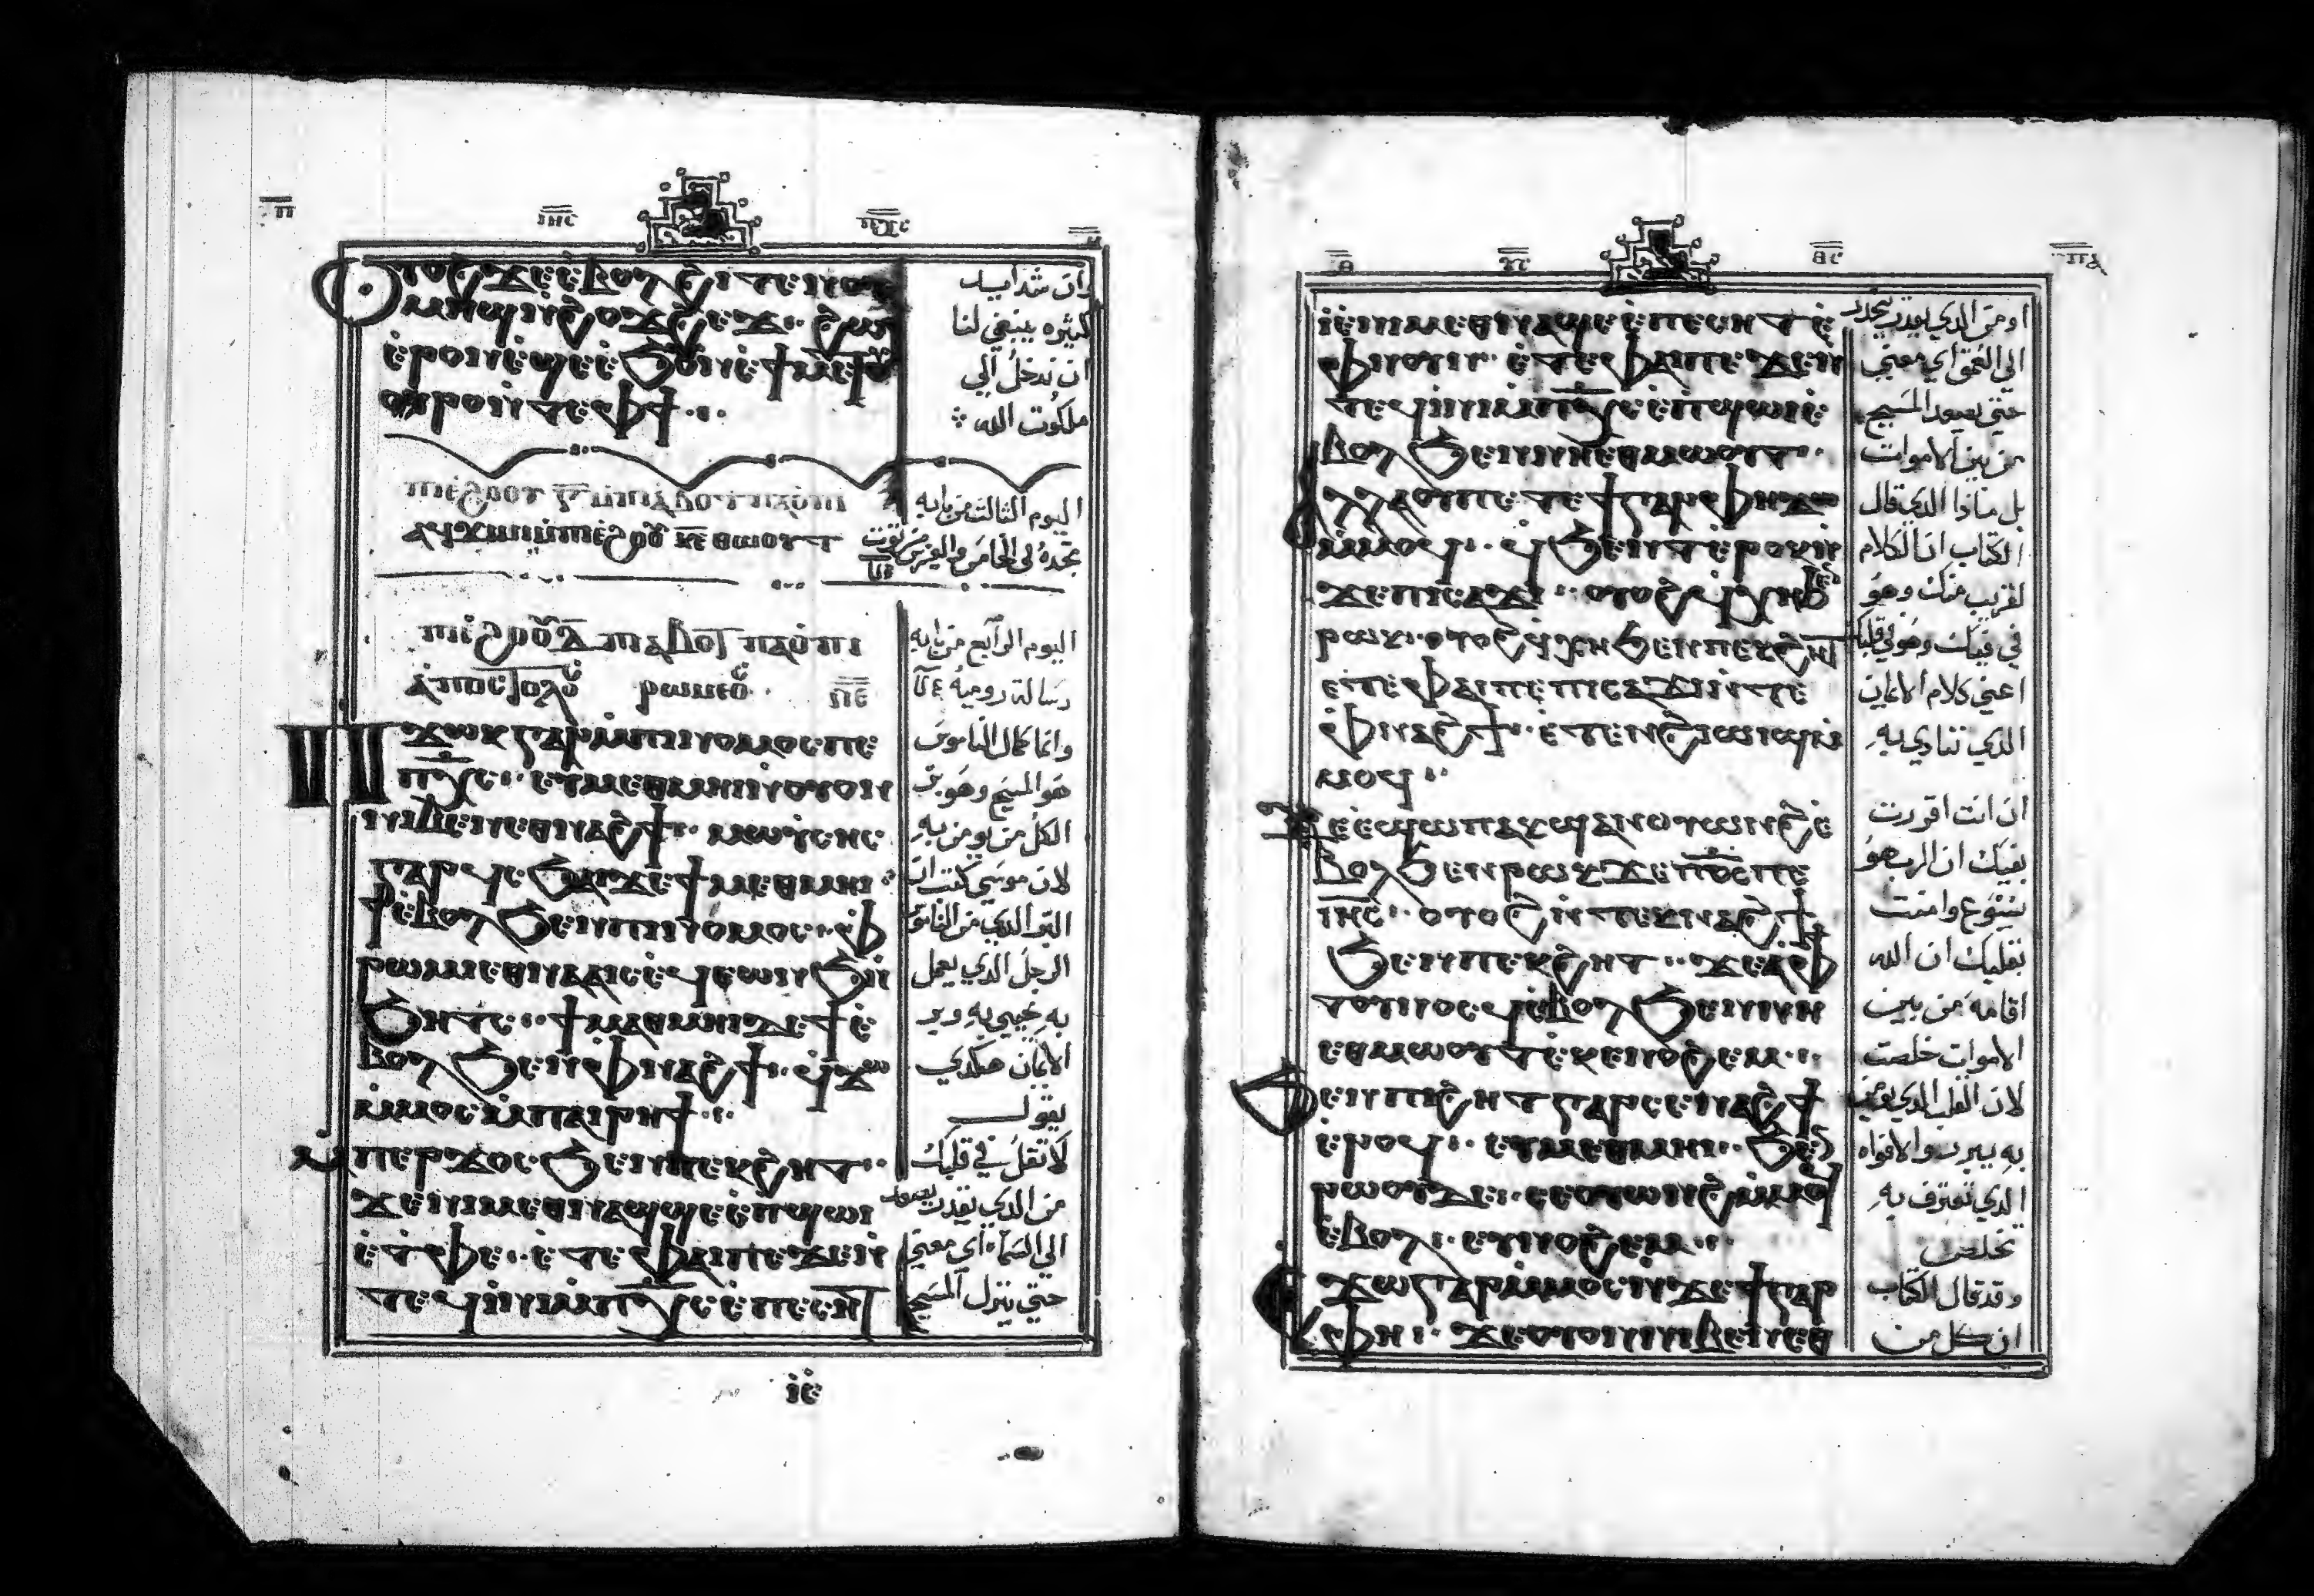 ⲓⲏⲥ ⲡⲭⲥ
ⲟⲩⲟϩ ϫⲉ ⲉⲃⲟⲗ ϩⲓⲧⲉⲛ ⲟⲩ
ⲙⲏϣ ⲛϩⲟϫϩⲉϫ· ϩⲱϯ
ⲉⲣⲟⲛ ⲉϣⲉ ⲉϧⲟⲩⲛ ⲉϯⲙⲉⲧ
ⲟⲩⲣⲟ ⲛⲧⲉ ⲫϯ
وان شدايد
كثيره ينبغي لنا
ان ندخل الي
ملكوت الله
ⲡⲓⲉϩⲟⲟⲩ ⲅ̅ ⲙⲡⲓⲁⲃⲟⲧ ⲡⲁⲟⲡⲓ
اليوم الثالث من بابه
ⲡⲓⲉϩⲟⲟⲩ ⲕⲉ̅ ⲑⲱⲟⲩⲧ
تجده في الخامس والعشرين من توت
ⲡⲓⲉϩⲟⲟⲩ ⲇ̅ ⲡⲓⲁⲃⲟⲧ ⲡⲁⲟⲡⲓ
اليوم الرابع من بابه
ⲁⲡⲟⲥⲧⲟⲗⲟⲩ ⲣⲱⲙⲉⲟⲩ
رسالة روميه
ⲡϫⲱⲕ ⲅⲁⲣ ⲙⲡⲓⲛⲟⲙⲟⲥ ⲡⲉ
ⲡⲭⲥ· ⲉⲩⲙⲉⲑⲙⲏⲓ ⲛⲟⲩⲟⲛ
ⲛⲓⲃⲉⲛ ⲉⲑⲛⲁϩϯ· ⲙⲱⲩⲥⲏⲥ
ⲅⲁⲣ ϥⲥϧⲁⲓ ϫⲉ ϯⲙⲉⲑⲙⲏⲓ
ⲉⲃⲟⲗ ϧⲉⲛ ⲡⲓⲛⲟⲙⲟⲥ· ⲫ
ⲣⲱⲙⲓ ⲉⲑⲛⲁⲁⲓⲥ ⲉϥⲉⲱⲛϧ ⲛ
ϧⲏⲧⲥ· ϯⲙⲉⲑⲙⲏⲓ ⲇⲉ ϯⲉ
ⲃⲟⲗ ϧⲉⲛ ⲫⲛⲁϩϯ· ϥϫⲱ
ⲙⲙⲟⲥ ⲙⲡⲁⲓⲣⲏϯ
ⲙⲡⲉⲣϫⲟⲥ ϧⲉⲛ ⲡⲉⲕϩⲏⲧ·
ϫⲉ ⲛⲓⲙ ⲉⲑⲛⲁϣϣⲉ ⲉⲡϣⲱⲓ
ⲉⲧⲫⲉ· ⲉⲧⲉ ⲫⲁⲓ ⲡⲉ ϫⲉ ⲛ
ⲧⲉϥⲓⲛⲓ ⲙⲡⲭⲥ ⲉⲡⲉⲥⲏⲧ
وانما كمال الناموس
هو المسيح وهو بر
الكل من يومن به
لان موسى كتب ان
البر الذي من الناموس
الرجل الذي يعمل
به يحيي به وبر
الايمان هكدي
يقول
لا تقل في قلبك
من الذي يقدر يصعد
الي السماء اي معني
حتي ينزل المسيح
ⲓⲉ
ⲓⲉ ⲛⲓⲙ ⲉⲑⲛⲁϣⲉ ⲉⲡⲉⲥⲏⲧ ⲉ
ⲫⲛⲟⲩⲛ· ⲉⲧⲉ ⲫⲁⲓ ⲡⲉ ϫⲉ ⲛ
ⲧⲉϥⲓⲛⲓ ⲙⲡⲭⲥ ⲉⲡϣⲱⲓ ⲉ
ⲃⲟⲗ ϧⲉⲛ ⲛⲏⲉⲑⲙⲱⲟⲩⲧ·
ⲁⲗⲗⲁ ⲟⲩ ⲡⲉⲧⲉ ϯⲅⲣⲁⲫⲏ ϫⲱ
ⲙⲙⲟϥ· ϥϧⲉⲛⲧ ⲉⲣⲟⲕ ⲛ
ϫⲉ ⲡⲓⲥⲁϫⲓ· ⲟⲩⲟϩ ϥⲭⲏ ϧⲉⲛ
ⲣⲱⲕ· ⲟⲩⲟϩ ϥⲭⲏ ϧⲉⲛ ⲡⲉⲕϩⲏⲧ
ⲉⲧⲉ ⲫⲁⲓ ⲡⲉ ⲡⲓⲥⲁϫⲓ ⲛⲧⲉ
ⲫⲛⲁϩϯ· ⲉⲧⲉⲛϩⲓⲱⲓϣ ⲙ
ⲙⲟϥ·
ϫⲉ ⲉϣⲱⲡ ⲁⲕϣⲁⲛⲟⲩⲱⲛϩ ⲉ
ⲃⲟⲗ ϧⲉⲛ ⲣⲱⲕ ϫⲉ ⲡⲟⲥ ⲡⲉ
ⲓⲏⲥ· ⲟⲩⲟϩ ⲛⲧⲉⲕⲛⲁϩϯ
ϧⲉⲛ ⲡⲉⲕϩⲏⲧ· ϫⲉ ⲁⲫϯ
ⲧⲟⲩⲛⲟⲥϥ ⲉⲃⲟⲗ ϧⲉⲛ ⲛⲏ
ⲉⲑⲙⲱⲟⲩⲧ ⲉⲕⲉⲛⲟϩⲉⲙ·
ϧⲉⲛ ⲡⲓϩⲏⲧ ⲅⲁⲣ ⲥⲉⲛⲁϩϯ
ⲉⲣⲟϥ· ⲉⲩⲙⲉⲑⲙⲏⲓ· ϧⲉⲛ
ⲣⲱⲟⲩ ⲇⲉ· ⲥⲉⲟⲩⲱⲛϩ ⲙⲙⲟϥ
ⲉⲃⲟⲗ· ⲉⲩⲛⲟϩⲉⲙ·
ⲥϫⲱ ⲅⲁⲣ ⲙⲙⲟⲥ ⲛϫⲉ ϯⲅⲣⲁ
ⲫⲏ· ϫⲉ ⲟⲩⲟⲛ ⲛⲓⲃⲉⲛ ⲉⲑ
او من الذي يقدر ينحدر
الي العمق اي معني
حتي يصعد المسيح
من بين الاموات
بل ماذا الذي قال
الكتاب ان الكلام
لقريب منك وهو
في فيك وهو في قلبك
اعني كلام الايمان
الذي ننادي به
ان انت اقررت
بفيك ان الرب هو
يسوع وامنت
بقلبك ان الله
اقامه من بين
الاموات خلصت
لان القلب الذي يومن
به يبرر والافواه
الذي تعترف به
تخلص
وقد قال الكتاب
ان كل من